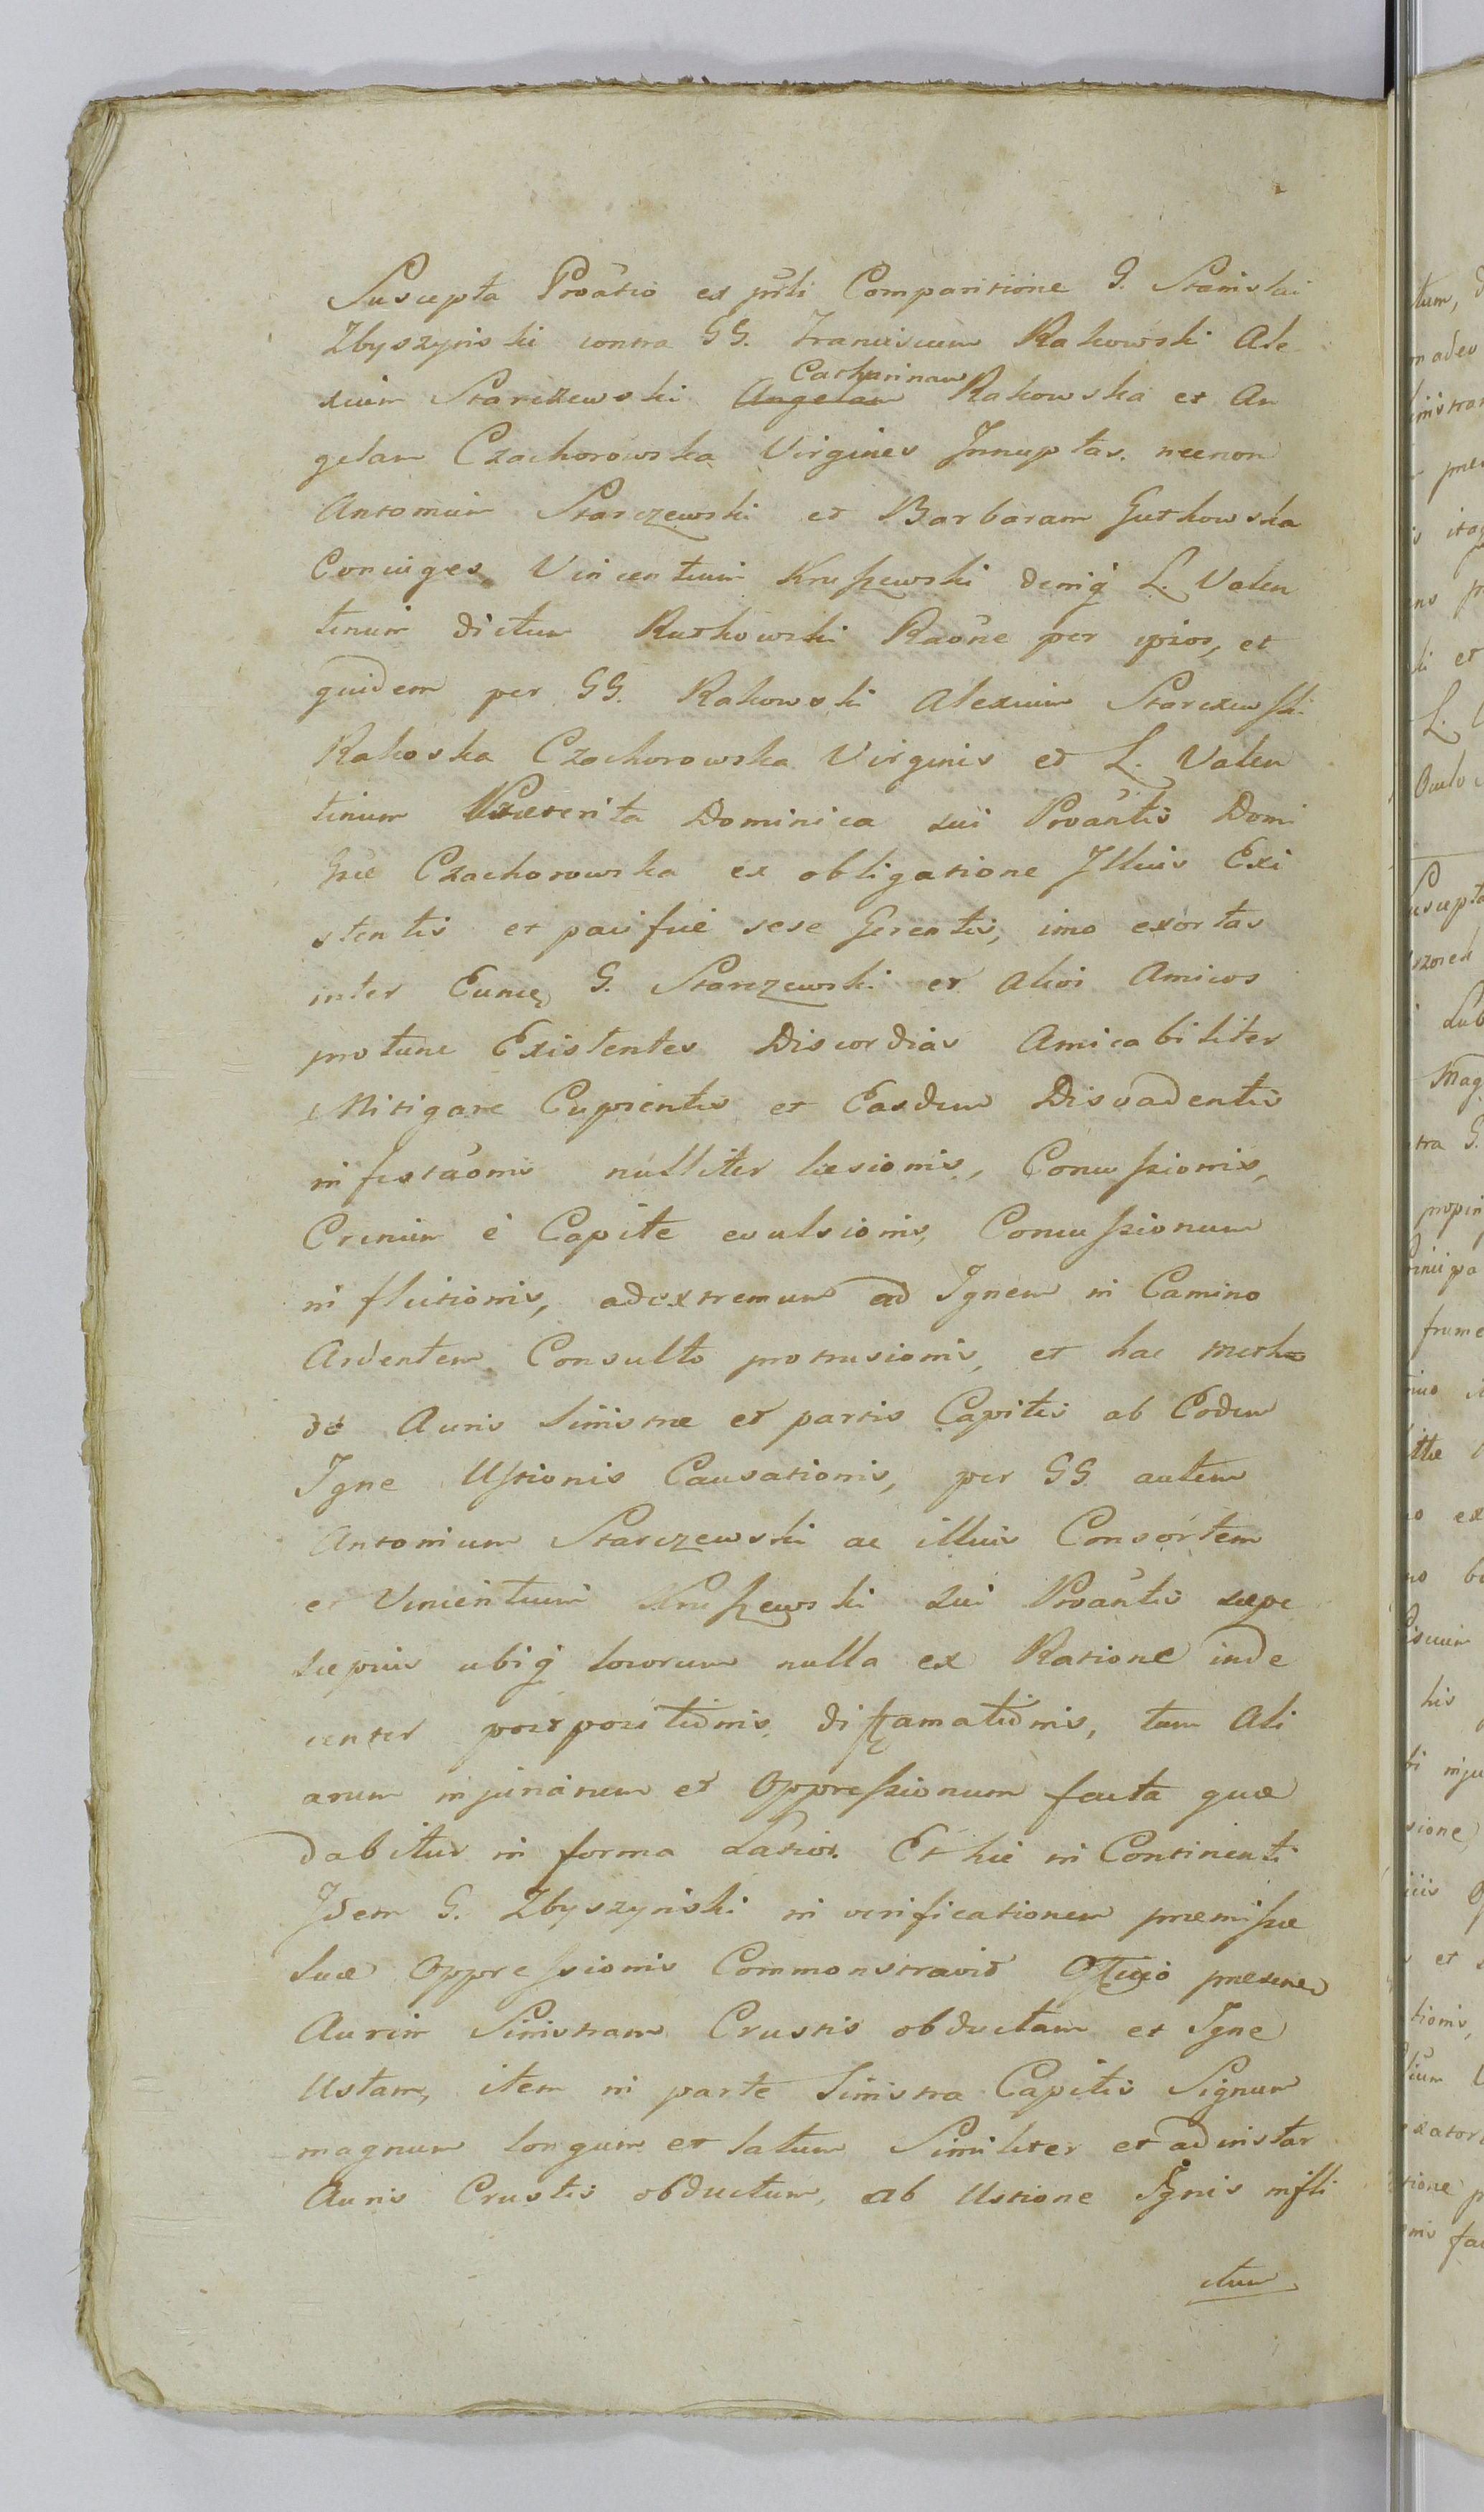 Suscepta Proātio ex pńti Comparitione G. Stanislai
Zbyszynski contra GG. Franciscum Rakowski Ale
xium Starczewski Catharinam Rakowska et An
gelam Czachorowska Virgines Innuptas. necnon
Antonium Starczewski et Barbaram Gutkowska
Coniuges, Vincentium Kruszewski deniq L. Valen
tinum dictum Rutkowski Raōne per ipsos, et
quidem per GG. Rakowski Alexium Starczewski
Rakoska Czachorowska Virginis et L. Valen
tinum Præterita Dominica sui Proāntis Domi
Gsæ Czachorowska ex obligatione Illius Exi
stentis et pacifice sese Gerentis, imo exortas
inter Eumq G. Starczewski et alios Amicos
protunc Existentes Discordias Amicabiliter
Mitigare Cupientis et Easdem Disvadentis
infestaōnis nulliter læsionis, Concussionis,
Crinium è Capite evulsionis, Concussionum
inflictionis, adextremum ad Ignem in Camino
Ardentem Consulto protrusionis, et hac metho
dô Auris Sinistræ et partis Capitis ab Eodem
Igne Ustionis Causationis, per GG. autem
Antonium Starczewski ac illius Consortem
et Vincentium Kruszewski sui Proāntis sæpe
sæpius ubiq locorum nulla ex Ratione inde
center postpositionis, diffamationis, tum Ali
arum injuriarum et Oppressionum facta quæ
dabitur in forma Latior. Et hic in Continenti
Idem G. Zbyszynski in verificationem præmissæ
suæ Oppressionis Commonstravit Officio præsenti
Aurim Sinistram Crustis obductam et Igne
Ustam, item in parte Sinistra Capitis Signum
magnum longum et latum Similiter et ad instar
Auris Crustis obductum, ab Ustione Ignis infli
ctum